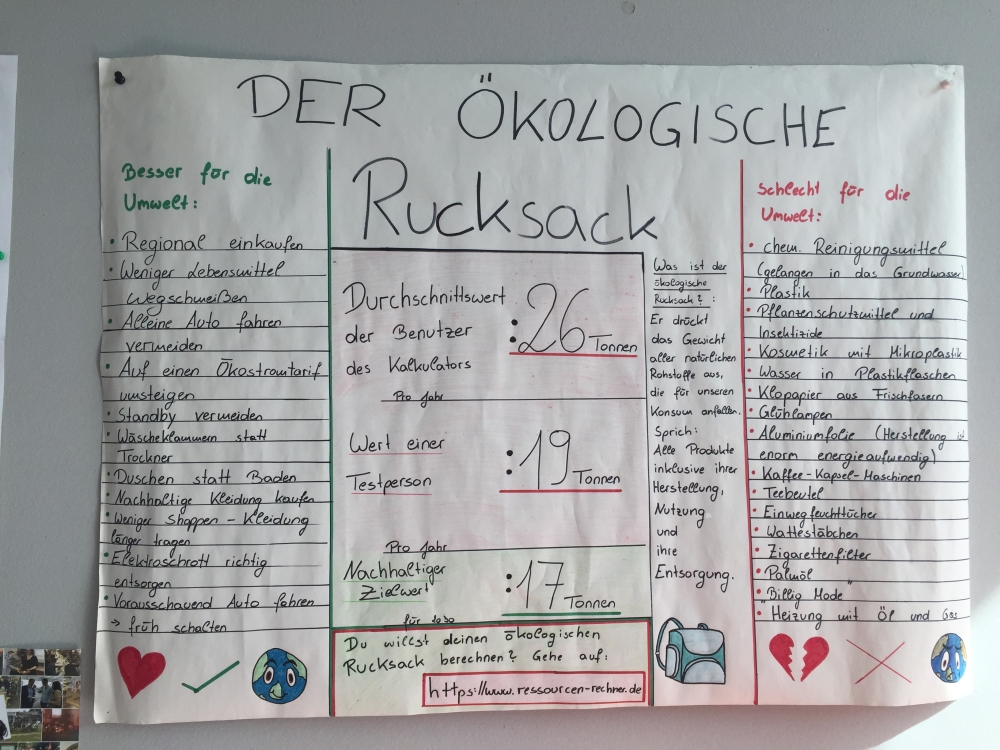 DER ÖKOLOGISCHE
Rucksack
Besser für die
Umwelt:
• Regional einkaufen
• Weniger Lebensmittel
wegschmeißen
• Alleine Auto fahren
vermeiden
• Auf einen Ökostromtarif
umsteigen
• Standby vermeiden
• Wäscheklammern statt
Trockner
• Duschen statt Baden
• Nachhaltige Kleidung kaufen
• Weniger shoppen - Kleidung
länger tragen
• Elektroschrott richtig
entsorgen
• Vorausschauend Auto fahren
→ früh schalten
Durchschnittswert
der Benutzer : 26 Tonnen
des Kalkulators
Pro Jahr
Wert einer
Testperson : 19 Tonnen
Pro Jahr
Nachhaltiger
Zielwert : 17 Tonnen
für 2030
Du willst deinen ökologischen
Rucksack berechnen? Gehe auf:
https://www.ressourcen-rechner.de
Was ist der
ökologische
Rucksack? :
Er drückt
das Gewicht
aller natürlichen
Rohstoffe aus,
die für unseren
Konsum anfallen.
Sprich:
Alle Produkte
inklusive ihrer
Herstellung,
Nutzung
und
ihre
Entsorgung.
Schlecht für die
Umwelt:
• chem. Reinigungsmittel
(gelangen in das Grundwasser)
• Plastik
• Pflanzenschutzmittel und
Insektizide
• Kosmetik mit Mikroplastik
• Wasser in Plastikflaschen
• Klopapier aus Frischfasern
• Glühlampen
• Aluminiumfolie (Herstellung ist
enorm energieaufwendig)
• Kaffee-Kapsel-Maschinen
• Teebeutel
• Einwegfeuchttücher
• Wattestäbchen
• Zigarettenfilter
• Palmöl
• "Billig Mode"
• Heizung mit Öl und Gas